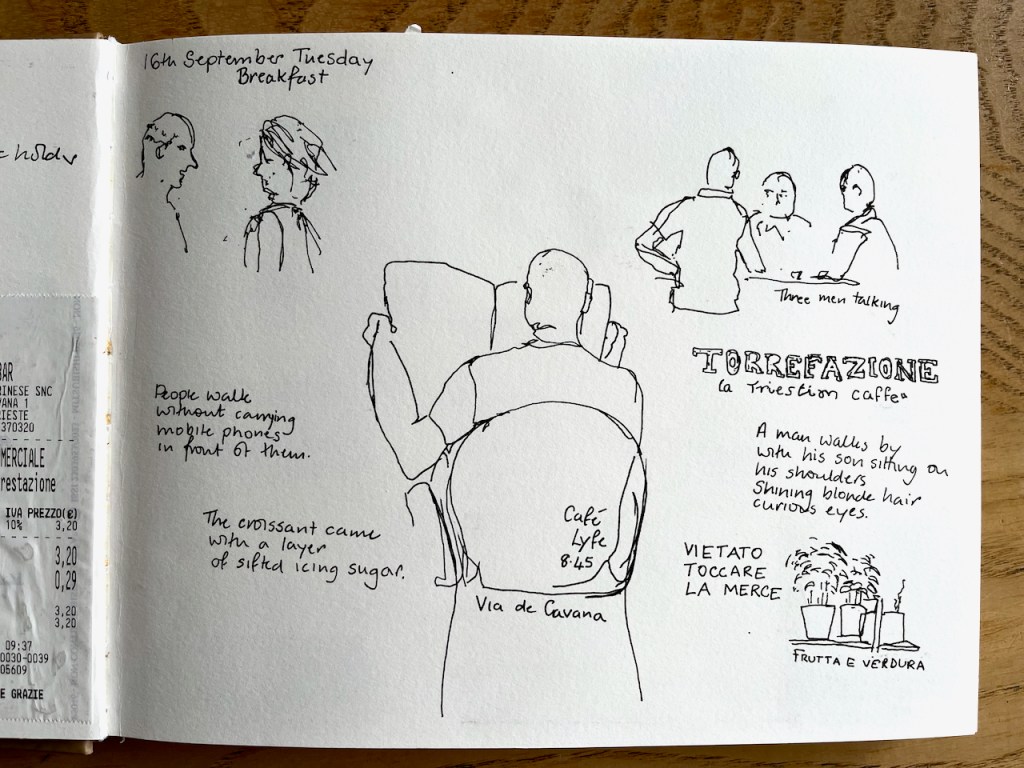 16th September Tuesday
Breakfast
Three men talking
TORREFAZIONE
la Triestion caffea
People walk
without carrying
mobile phones
in front of them.
A man walks by
with his son sitting on
his shoulders
Shining blonde hair
curious eyes.
The croissant came
with a layer
of sifted icing sugar.
Café
Lyfe
8.45
Via de Cavana
VIETATO
TOCCARE
LA MERCE
FRUTTA E VERDURA
BAR
RINESE SNC
VANA 1
RIESTE
370320
MERCIALE
restazione
IVA PREZZO(€)
10% 3,20
3,20
0,29
3,20
3,20
09:37
0030-0039
05609
E GRAZIE